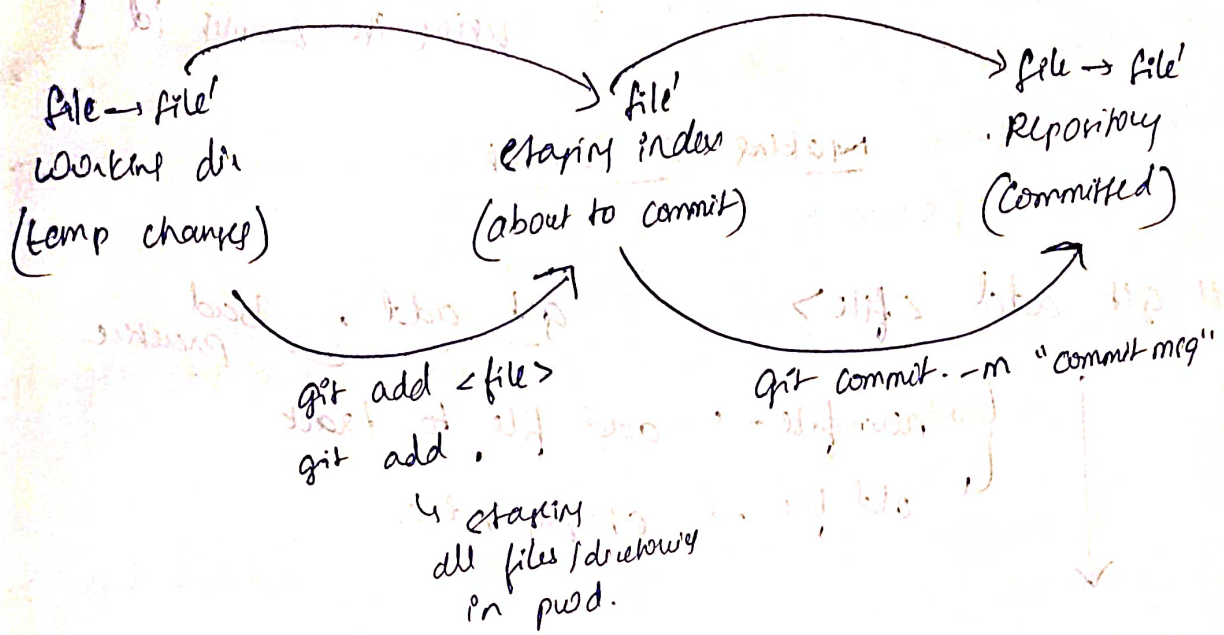 file → file'
working dir
(temp changes)
file'
staging index
(about to commit)
file → file'
. Repository
(Committed)
git add <file>
git add .
↳ staging
all files/directories
in pwd.
git commit. -m "commit msg"